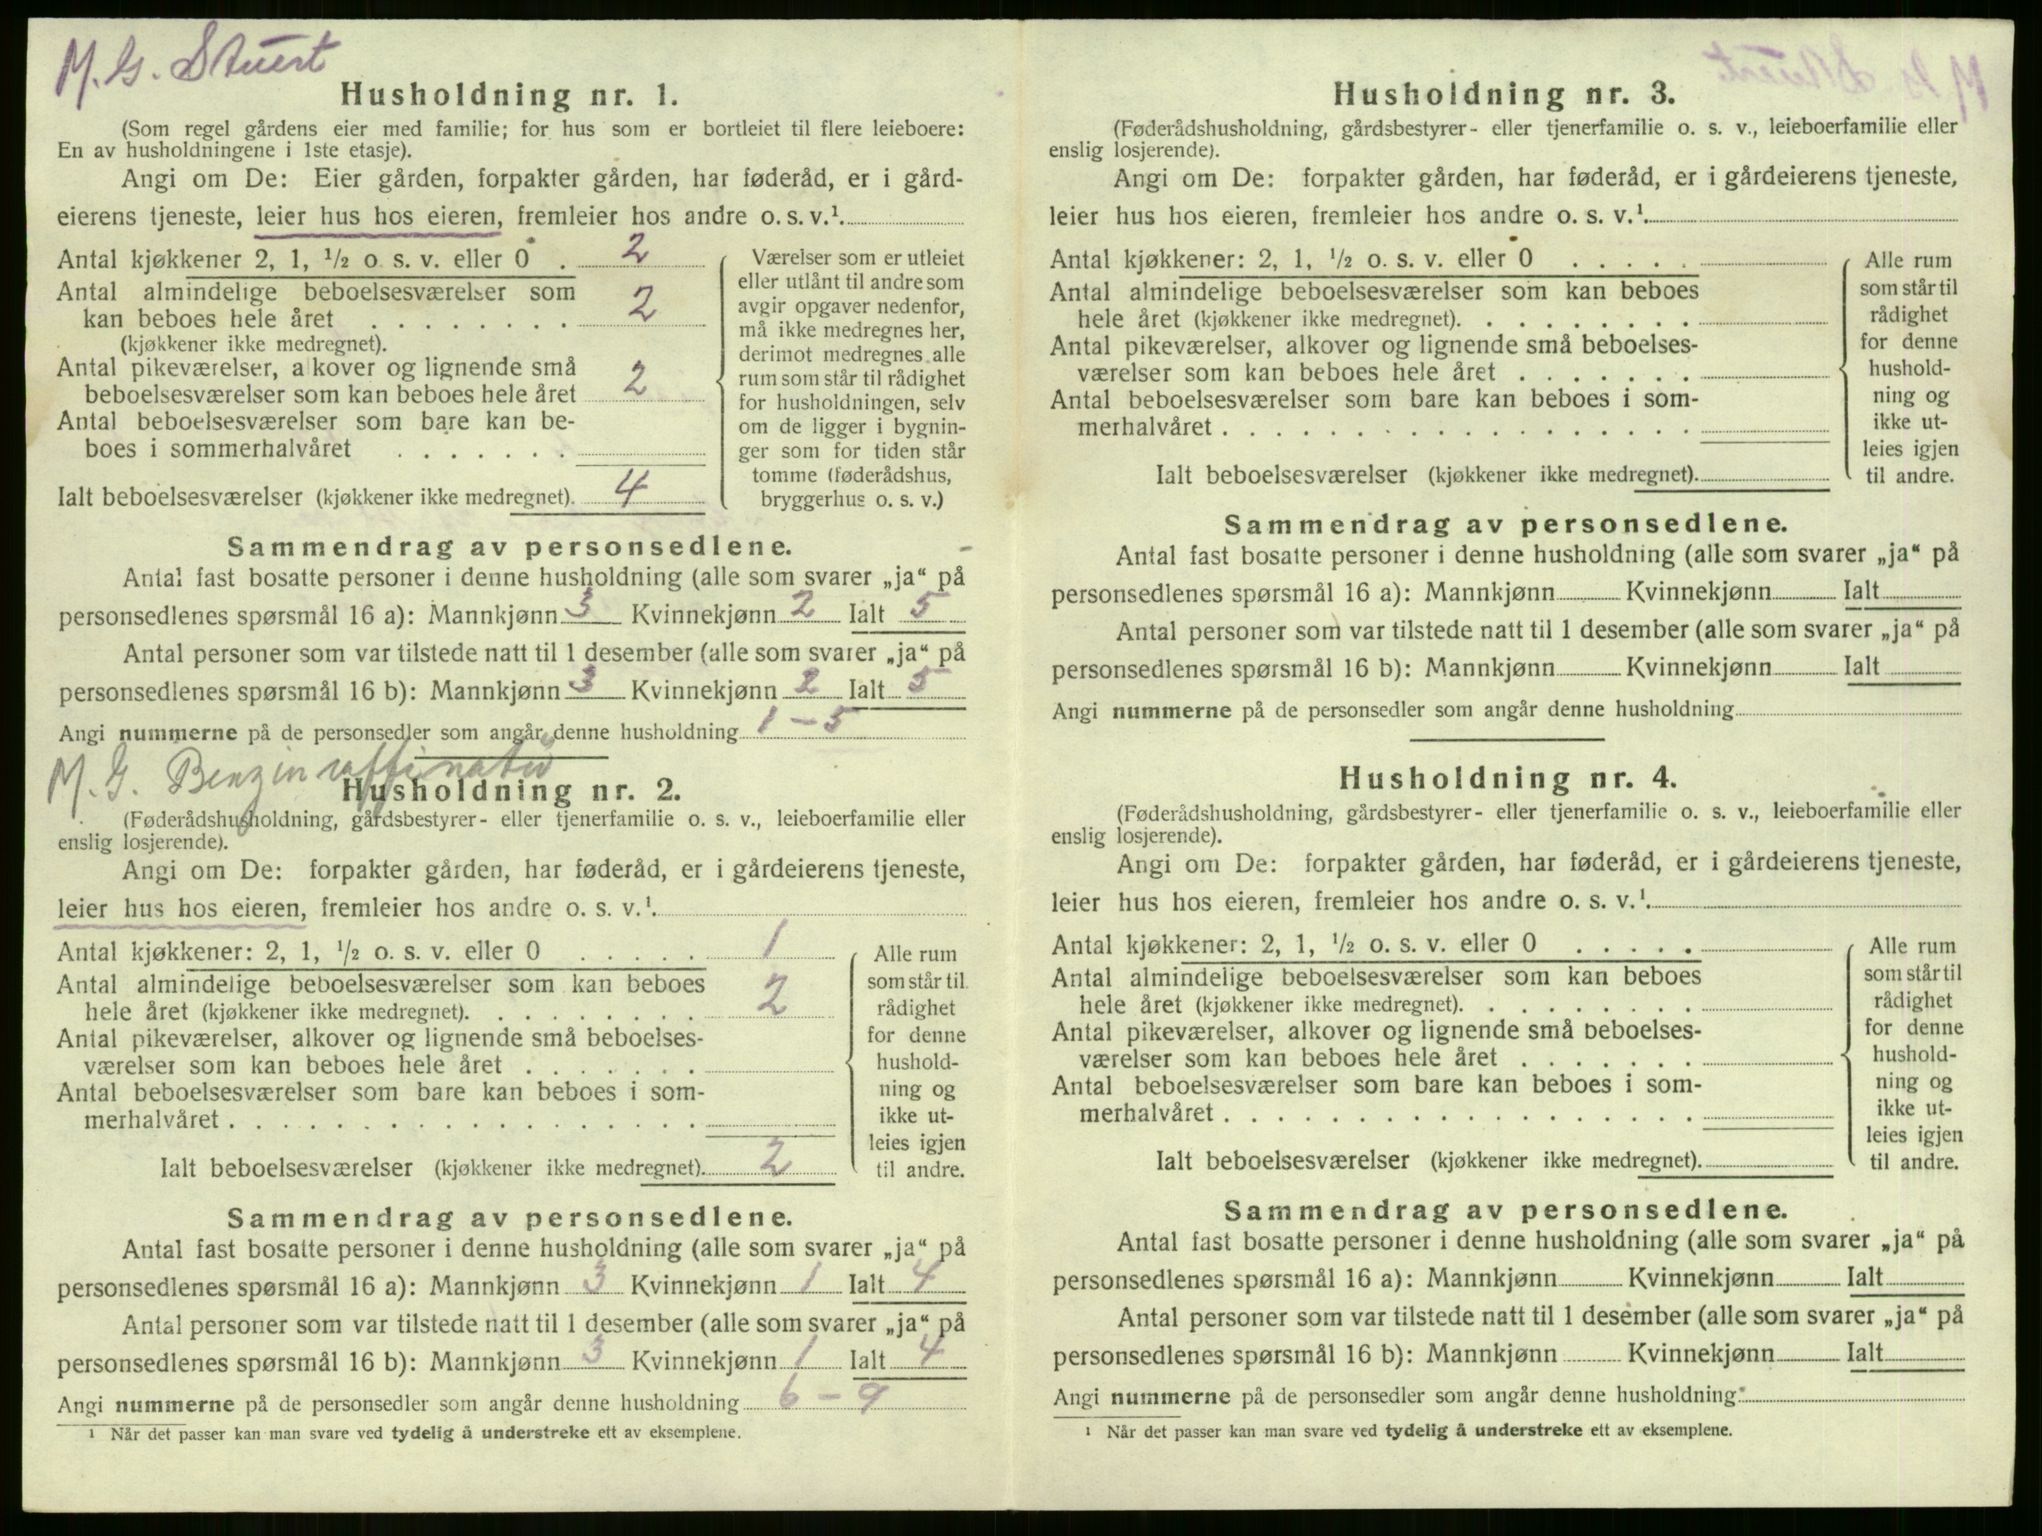 M. G. Stuert
Husholdning nr. 1.
(Som regel gårdens eier med familie; for hus som er bortleiet til flere leieboere:
En av husholdningene i 1ste etasje).
Angi om De: Eier gården, forpakter gården, har føderåd, er i gård-
eierens tjeneste, leier hus hos eieren, fremleier hos andre o. s. v.¹.
Antal kjøkkener 2, 1, ½ o s. v. eller 0 . 2
Antal almindelige beboelsesværelser som
kan beboes hele året . . . . . . . . 2
(kjøkkener ikke medregnet).
Antal pikeværelser, alkover og lignende små
beboelsesværelser som kan beboes hele året 2
Antal beboelsesværelser som bare kan be-
boes i sommerhalvåret . . . . . . .
Ialt beboelsesværelser (kjøkkener ikke medregnet). 4
Værelser som er utleiet
eller utlånt til andre som
avgir opgaver nedenfor,
må ikke medregnes her,
derimot medregnes alle
rum som står til rådighet
for husholdningen, selv
om de ligger i bygnin-
ger som for tiden står
tomme (føderådshus,
bryggerhus o. s. v.)
Sammendrag av personsedlene.
Antal fast bosatte personer i denne husholdning (alle som svarer „ja“ på
personsedlenes spørsmål 16 a): Mannkjønn 3 Kvinnekjønn 2 Ialt 5
Antal personer som var tilstede natt til 1 desember (alle som svarer „ja“ på
personsedlenes spørsmål 16 b): Mannkjønn 3 Kvinnekjønn 2 Ialt 5
Angi nummerne på de personsedler som angår denne husholdning 1 – 5
M. G. Benzin
Husholdning nr. 2.
(Føderådshusholdning, gårdsbestyrer- eller tjenerfamilie o. s. v., leieboerfamilie eller
enslig losjerende).
Angi om De: forpakter gården, har føderåd, er i gårdeierens tjeneste,
leier hus hos eieren, fremleier hos andre o. s. v.¹.
Antal kjøkkener: 2, 1, ½ o. s. v. eller 0 . . . . . 1
Antal almindelige beboelsesværelser som kan beboes
hele året (kjøkkener ikke medregnet). . . . . . . . . 2
Antal pikeværelser, alkover og lignende små beboelses-
værelser som kan beboes hele året . . . . . . .
Antal beboelsesværelser som bare kan beboes i som-
merhalvåret . . . . . . . . . . . . . . . . . .
Ialt beboelsesværelser (kjøkkener ikke medregnet). 2
Alle rum
som står til
rådighet
for denne
hushold-
ning og
ikke ut-
leies igjen
til andre.
Sammendrag av personsedlene.
Antal fast bosatte personer i denne husholdning (alle som svarer „ja“ på
personsedlenes spørsmål 16 a): Mannkjønn 3 Kvinnekjønn 1 Ialt 4
Antal personer som var tilstede natt til 1 desember (alle som svarer „ja“ på
personsedlenes spørsmål 16 b): Mannkjønn 3 Kvinnekjønn 1 Ialt 4
Angi nummerne på de personsedler som angår denne husholdning 6 – 9
¹ Når det passer kan man svare ved tydelig å understreke ett av eksemplene.
Husholdning nr. 3.
(Føderådshusholdning, gårdsbestyrer- eller tjenerfamilie o. s. v., leieboerfamilie eller
enslig losjerende).
Angi om De: forpakter gården, har føderåd, er i gårdeierens tjeneste,
leier hus hos eieren, fremleier hos andre o. s. v.¹.
Antal kjøkkener: 2, 1, ½ o. s. v. eller 0 . . . . .
Antal almindelige beboelsesværelser som kan beboes
hele året (kjøkkener ikke medregnet). . . . . . . . .
Antal pikeværelser, alkover og lignende små beboelses-
værelser som kan beboes hele året . . . . . . .
Antal beboelsesværelser som bare kan beboes i som-
merhalvåret . . . . . . . . . . . . . . . . . .
Ialt beboelsesværelser (kjøkkener ikke medregnet).
Alle rum
som står til
rådighet
for denne
hushold-
ning og
ikke ut-
leies igjen
til andre.
Sammendrag av personsedlene.
Antal fast bosatte personer i denne husholdning (alle som svarer „ja“ på
personsedlenes spørsmål 16 a): Mannkjønn Kvinnekjønn Ialt
Antal personer som var tilstede natt til 1 desember (alle som svarer „ja“ på
personsedlenes spørsmål 16 b): Mannkjønn Kvinnekjønn Ialt
Angi nummerne på de personsedler som angår denne husholdning
Husholdning nr. 4.
(Føderådshusholdning, gårdsbestyrer- eller tjenerfamilie o. s. v., leieboerfamilie eller
enslig losjerende).
Angi om De: forpakter gården, har føderåd, er i gårdeierens tjeneste,
leier hus hos eieren, fremleier hos andre o. s. v.¹.
Antal kjøkkener: 2, 1, ½ o. s. v. eller 0 . . . . .
Antal almindelige beboelsesværelser som kan beboes
hele året (kjøkkener ikke medregnet). . . . . . . . .
Antal pikeværelser, alkover og lignende små beboelses-
værelser som kan beboes hele året . . . . . . .
Antal beboelsesværelser som bare kan beboes i som-
merhalvåret . . . . . . . . . . . . . . . . . .
Ialt beboelsesværelser (kjøkkener ikke medregnet).
Alle rum
som står til
rådighet
for denne
hushold-
ning og
ikke ut-
leies igjen
til andre.
Sammendrag av personsedlene.
Antal fast bosatte personer i denne husholdning (alle som svarer „ja“ på
personsedlenes spørsmål 16 a): Mannkjønn Kvinnekjønn Ialt
Antal personer som var tilstede natt til 1 desember (alle som svarer „ja“ på
personsedlenes spørsmål 16 b): Mannkjønn Kvinnekjønn Ialt
Angi nummerne på de personsedler som angår denne husholdning
¹ Når det passer kan man svare ved tydelig å understreke ett av eksemplene.